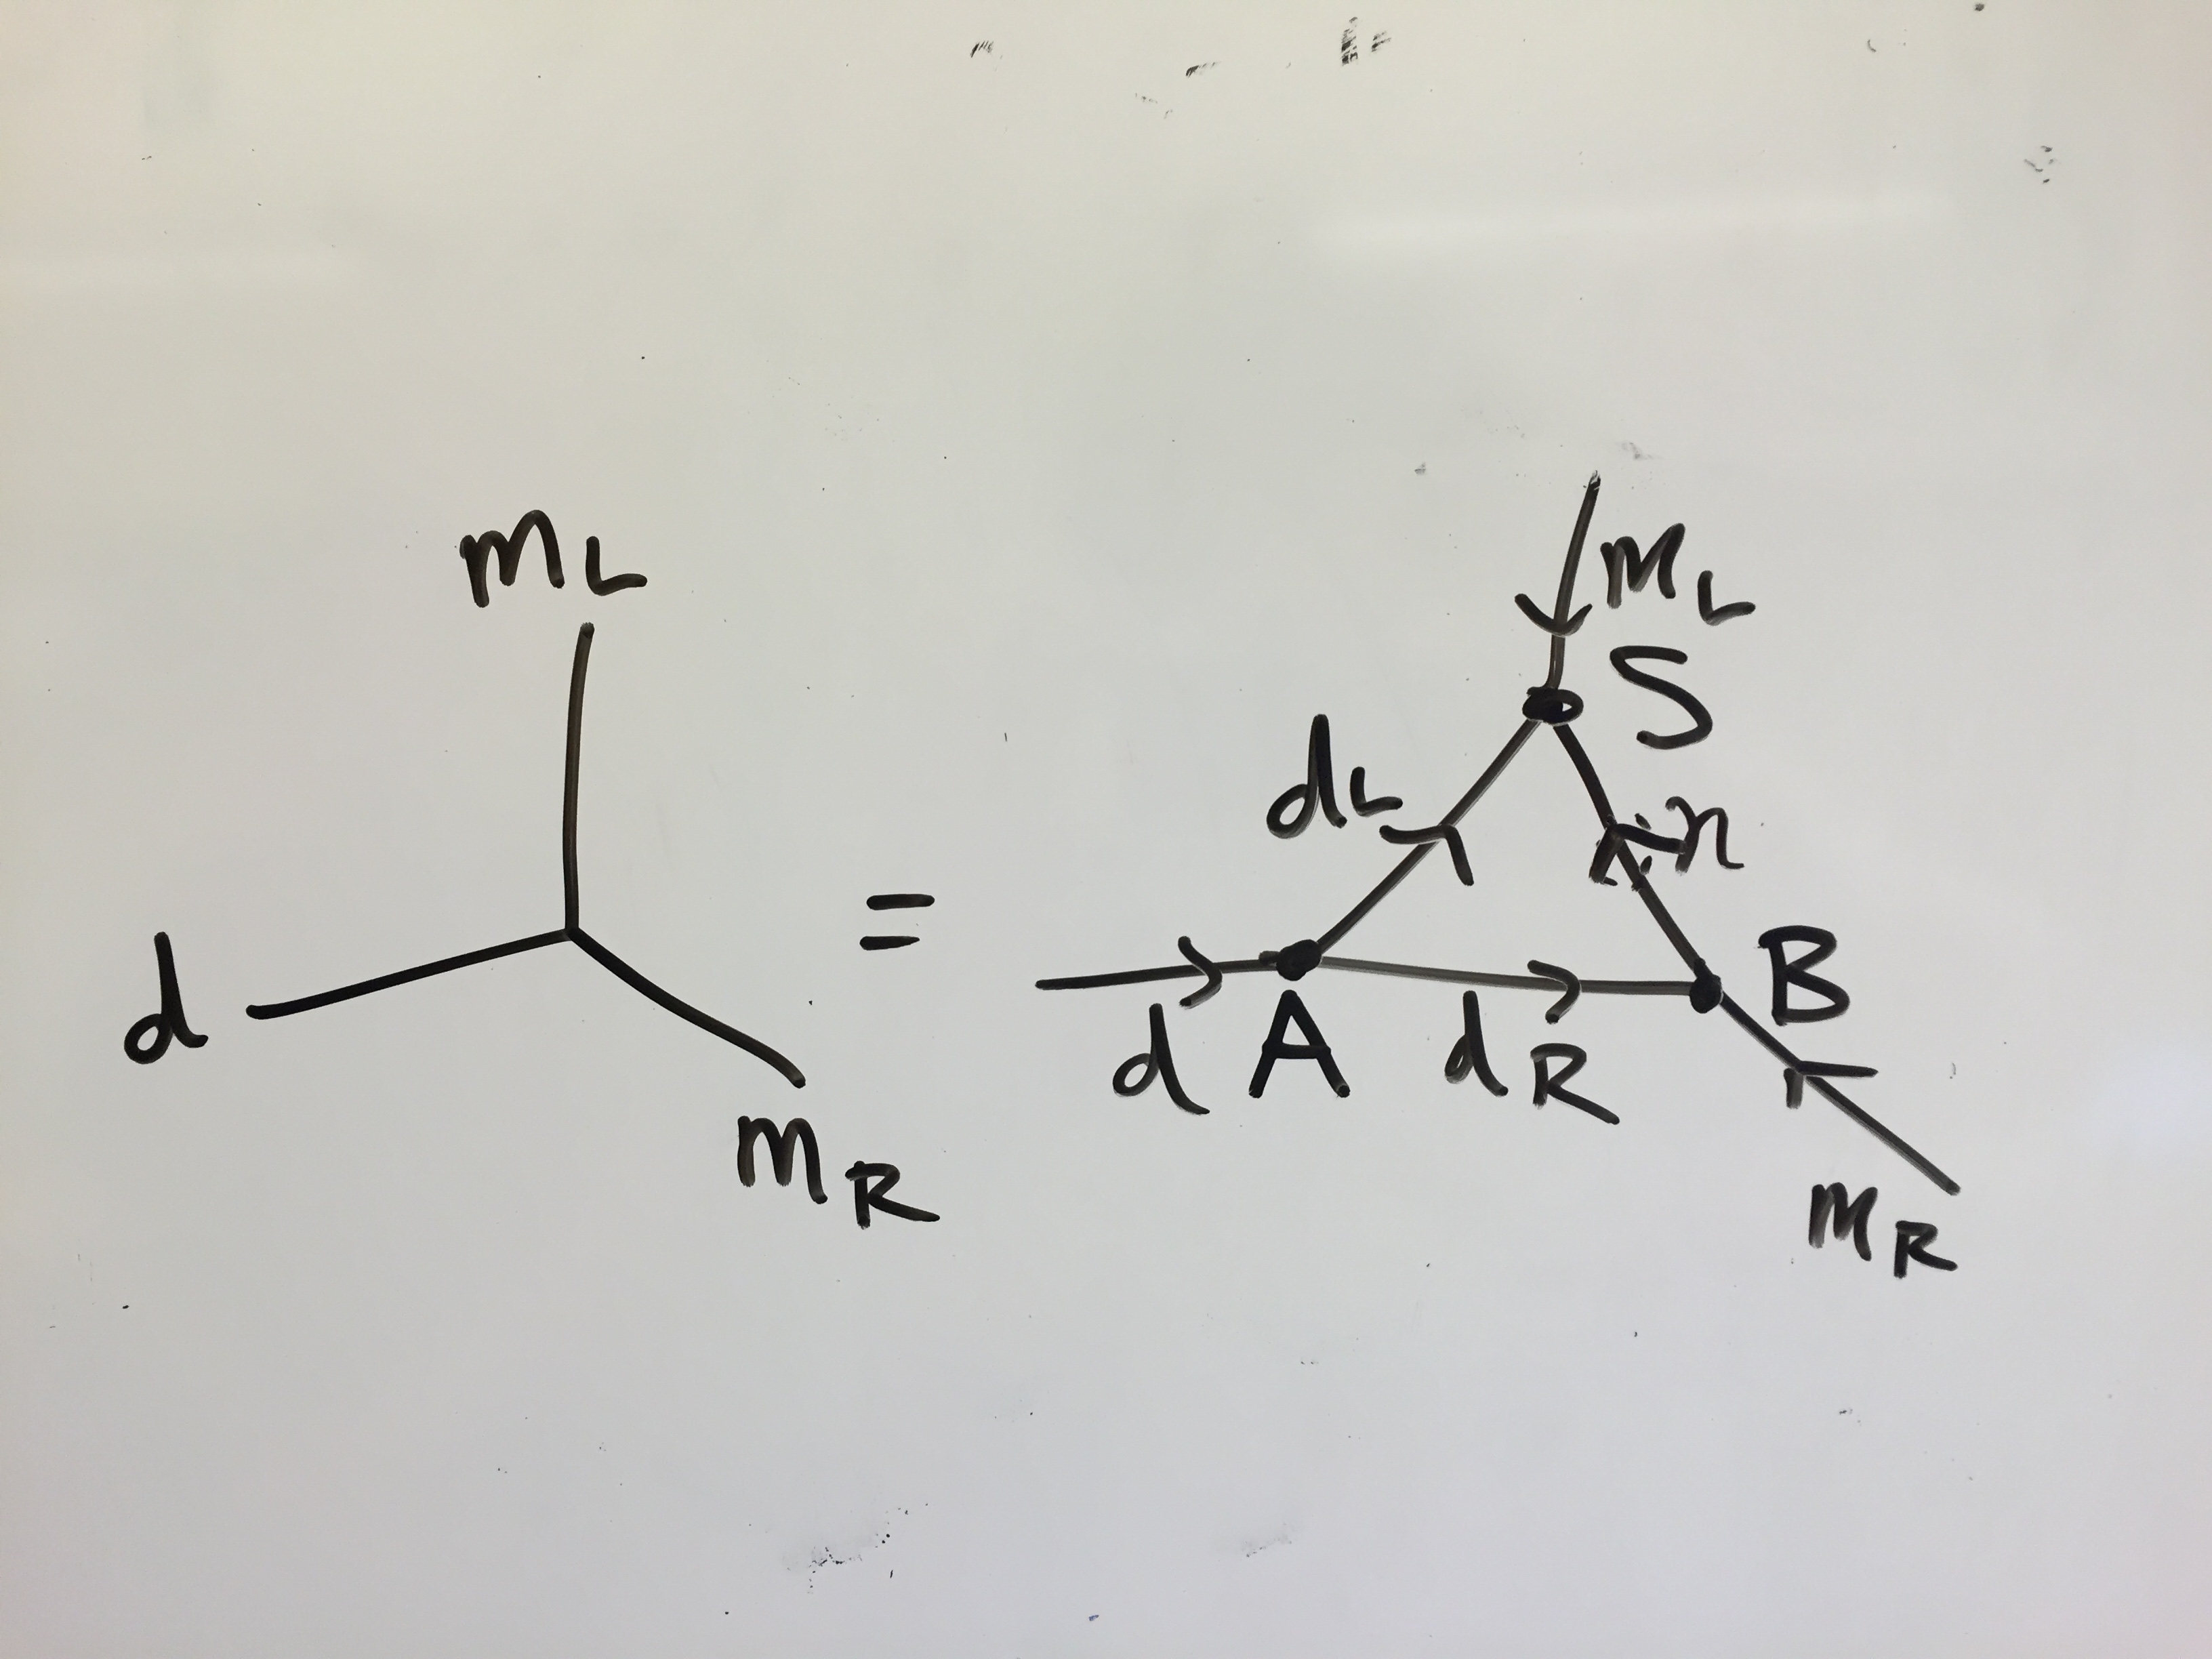 m_L
d
m_R
=
m_L
S
d_L
n
d
A
d_R
B
m_R